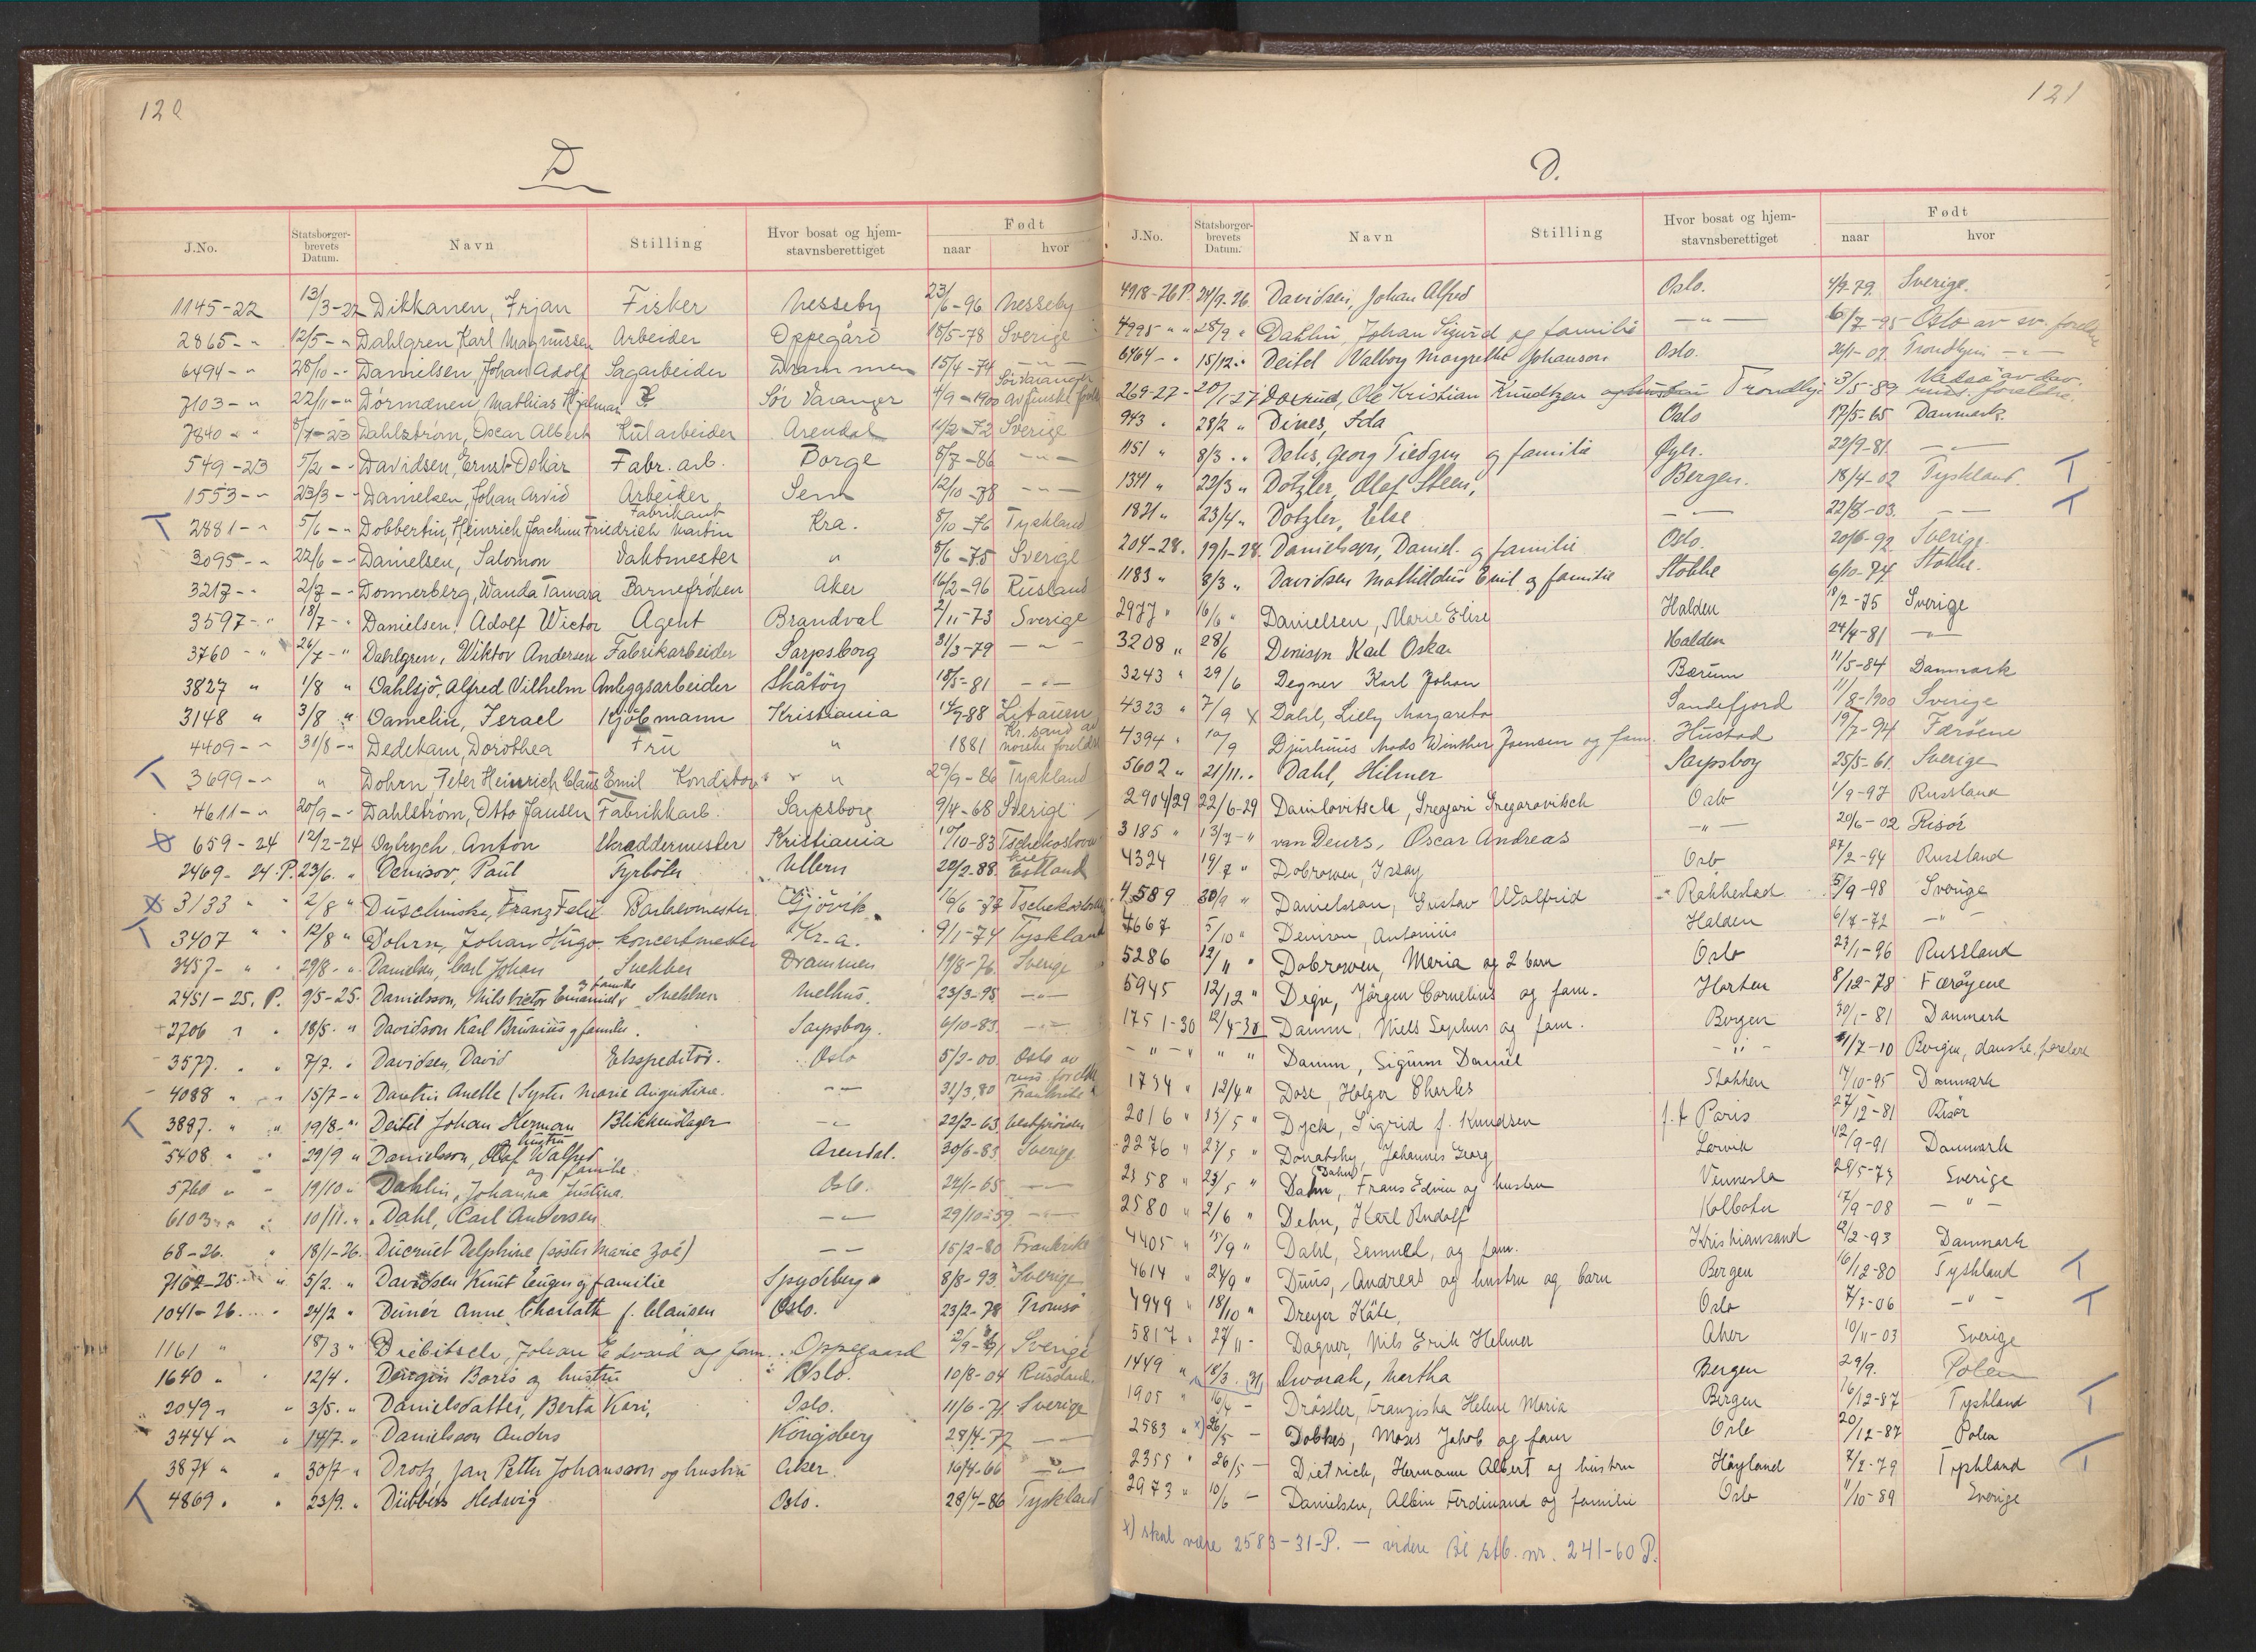 120
D
J.No. Statsborgerbrevets Datum. Navn Stilling Hvor bosat og hjemstavnsberettiget Født naar hvor
1145-22 13/3-22 Dikkanen, Frjan Fisker Nesseby 23/6-96 Nesseby
2865-" 12/5-" Dahlgren, Karl Magnussen Arbeider Oppegård 18/5-78 Sverige
6494-" 28/10-" Danielsen, Johan Adolf Sagarbeider Drammen 15/4-74 -"-
7103-" 22/11-" Dörmænen, Mathias Hjalmar Sör Varanger 4/9-1900 Sör Varanger av finske foreldre
7840-" 5/7-23 Dahlström, Oscar Albert Kularbeider Arendal 11/2-72 Sverige
549-23 5/2-" Davidsen, Ernst Oskar Fabr. arb. Borge 8/7-86 -"-
1553-" 23/3-" Danielsen, Johan Arvid Arbeider Sem 12/10-78 -"-
T 2881-" 5/6-" Dobbertin, Heinrich Joachim Friedrich Martin Fabrikant Kra. 8/10-76 Tyskland
3095-" 22/6-" Danielsen, Salomon Vaktmester " 5/6-75 Sverige
3217-" 2/7-" Donnerberg, Wanda Tamara Barnefröken Aker 16/2-96 Rusland
3597-" 18/7-" Danielsen, Adolf Wictor Agent Brandval 2/11-73 Sverige
3760-" 26/7-" Dahlgren, Wiktor Andersen Fabrikarbeider Sarpsborg 31/3-79 -"-
3827 " 1/8 " Dahlsjö, Alfred Vilhelm Anleggsarbeider Skåtöy 18/5-81 -"-
3148 " 3/8 " Damelin, Israel Kjöbmann Kristiania 14/7-88 Litauen
4409-" 31/8-" Dedekam, Dorothea Fru " 1881 Kr.sand av norske foreldre
T 3699-" " Dohrn, Peter Heinrich Claus Emil Konditor " 29/9-86 Tyskland
4611-" 20/9-" Dahlström, Otto Jansen Fabrikkarb. Sarpsborg 9/4-68 Sverige
659-24 12/2-24 Dybrych, Anton Skreddermester Kristiania 10/10-83 Tschekoslovakiet
2469-24.P. 23/6. " Denisov, Paul Fyrböter Ullern 22/2-88. Estland
3133 " " 2/8 " Duschinske, Franz Felix Barbermester Gjövik 16/6-77 Tschekoslov.
T 3407 " " 12/8 " Dohrn, Johan Hugo koncertmester Kr.a. 9/1-74 Tyskland
3457-" " 29/8-" Danielsen, Carl Johan Snekker Drammen 19/8-76. Sverige
2451-25. P. 9/5-25. Danielsson, Nils Victor Emanuel og familie Snekker Melhus. 23/3-95 -"-
2706 " " 18/5. " Davidson Karl Brunius og familie. Sarpsborg. 6/10-83 -"-
3577. " " 7/7. " Davidsen, David Ekspeditör. Oslo 5/2-00. Oslo av russ. foreldre
4088 " " 15/7-" Dautris Anette (Syster Marie Augustine. -"- 31/3.80 Frankrike
T 3887. " " 19/8-" Deitel Johan Herman Blikkenslager -"- 22/2-63
5408 " " 29/9 " Danielsson, Olaf Walfred og hustru Arendal. 30/6-83 Sverige
5760 " " 19/10 " Dahlin, Johanna Justina. og familie Oslo. 24/1-65 -"-
6103 " " 10/11. " Dahl, Carl Andersen -"- 29/10-59 -"-
68-26. " 18/1-26. Ducruet Delphine (söster Marie Zoé) -"- 15/2-80 Frankrike
7162-25. " 5/2. " Davidsen Knut Eugen og familie Spydeberg 8/8-93 Sverige
1041-26. " 24/2 " Dunér Anne Charlotte f. Clausen Oslo. 23/2-78 Tromsö
1161 " 18/3 " Diebitsch, Johan Edvard og fam. Oppegaard 2/9-91 Sverige
1640 " " 12/4. Deigin Boris og hustru Oslo. 10/8-04 Rusland.
2049 " " 3/5. " Danielsdatter, Berta Kari, Oslo. 11/6-71 Sverige
3444 " " 14/7. " Danielsson Anders Kongsberg 28/4-77 -"-
3874 " " 30/7-" Drotz, Jan Petter Johansson og hustru Aker. 16/4-66 -"-
T 4869. " 23/9. " Dübbers Hedwig Oslo. 28/4-86 Tyskland
121
D.
J.No. Statsborgerbrevets Datum. Navn Stilling Hvor bosat og hjemstavnsberettiget Født naar hvor
4918-26 P. 24/9.26. Davidsen, Johan Alfred Oslo. 4/9.79. Sverige.
4995 " " 28/9 " Dahlin, Johan Sigurd og familie -"- 6/7-95 Oslo av sv. foreldre
6464-" 15/12." Deitel Valborg Margrethe Johanson Oslo. 26/1-02 Trondhjem -"-
269-27- 20/1-27 Dørrud, Ole Kristian Knudtzen og hustru Trondhj. 3/5-89 Vadsö av
943 " 28/2 " Dines, Ida Oslo 17/5-65 Danmark.
1151 " 8/3. " Dehs, Georg Tiedgen og familie 22/9-81. -"-
1341 " 22/3 " Dotzler, Olaf Steen, Bergen. 18/4-02 Tyskland. T
1821 " 23/4 " Dotzler, Else -"- 22/8-03. -"- T
204-28. 19/1-28. Danielsen, Daniel. og familie Oslo. 20/6-92 Sverige.
1183 " 8/3 " Davidsen Mathildus Emil og familie Stokke 6/10-74 Stokke.
2977 " 16/6 " Danielsen, Marie Elise Halden 18/2-75 Sverige
3208 " 28/6 Denison Karl Oskar Halden 24/4-81 -"-
3243 " 29/6 Degner Karl Johan Bærum 11/5-84 Danmark
4323 " 7/9 x Dahl, Lilly Margareta Sandefjord 11/8-1900 Sverige
4394 " 10/9 Djurhuus Mads Winther Joensen og fam. Hustad 19/7-94 Færöene
5602 " 21/11." Dahl, Hilmer Sarpsborg 25/5-61. Sverige
2904/29 22/6-29 Danilovitsch, Gregori Gregorovitsch Oslo 1/9-97 Russland
3185 " 13/7-" van Deurs, Oscar Andreas -"- 20/6-02 Risör
4324 19/7 " Dobrowen, Issay Oslo 27/2-94 Russland
4589 30/9 " Danielsson, Gustav Walfrid Rakkestad 5/9-98 Sverige
4667 5/10 " Denison, Antonius Halden 6/7-72 -"-
5286 12/11 " Dobrowen, Maria og 2 barn Oslo 23/1-96 Russland
5945 12/12 " Degn, Jörgen Cornelius og fam. Horten 8/12-78 Færöyene
1751-30 12/4-30 Damm, Niels Sophus og fam. Bergen 30/1-81 Danmark
-"-" " " Damm, Sigurm Daniel -"- 11/7-10 Bergen, danske foreldre
1734 " 12/4 " Dose, Holger Charles Stokken 14/10-95 Danmark
2016 " 15/5 " Dyck, Sigrid f. Knudsen f.t. Paris 27/12-81 Risör
2276 " 23/5 " Donatsky, Johannes Georg Larvik 12/9-91 Danmark
2358 " 23/5 " Dahn (Dahn), Frans Edvin og hustru Vennesla 28/5-73 Sverige
2580 " 2/6 " Dehn, Karl Rudolf Kolbotn 17/9-08 -"-
4405 " 15/9 " Dahl, Samuel, og fam. Kristiansand 12/2-93 Danmark
4614 " 24/9 " Duus, Andreas og hustru og barn Bergen 16/12-80 Tyskland T
4949 " 18/10 " Dreyer Käte, Oslo 7/7-06 -"- T
5817 " 27/11 - Dagner, Nils Erik Helmer Aker 10/11-03 Sverige
1449 " 18/3. (31) Dworak, Martha Bergen 29/9. Polen
1905 " 16/4 - Drössler, Franziska Helene Maria Bergen 16/12-87 Tyskland T
2583 " x) 26/5 - Dobkes, Moses Jakob og fam Oslo 20/12-87 Polen
2355 " 26/5 - Dietrich, Hermann Albert og hustru Høyland 7/2-79 Tyskland T
2973 " 10/6 - Danielsen, Albin Ferdinand og familie Oslo 11/10-89 Sverige
x) skal være 2583-31-P. - videre til stb. nr. 241-60 P.